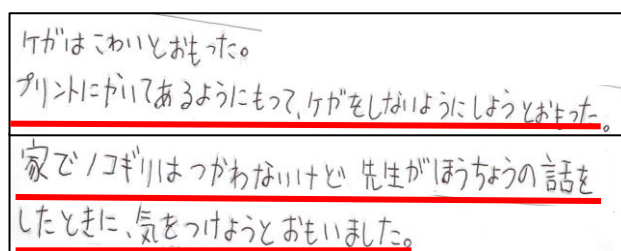 ケガはこわいとおもった。
プリントにかいてあるようにもって、ケガをしないようにしようとおもった。
家でノコギリはつかわないけど 先生がほうちょうの話を
したときに、気をつけようとおもいました。